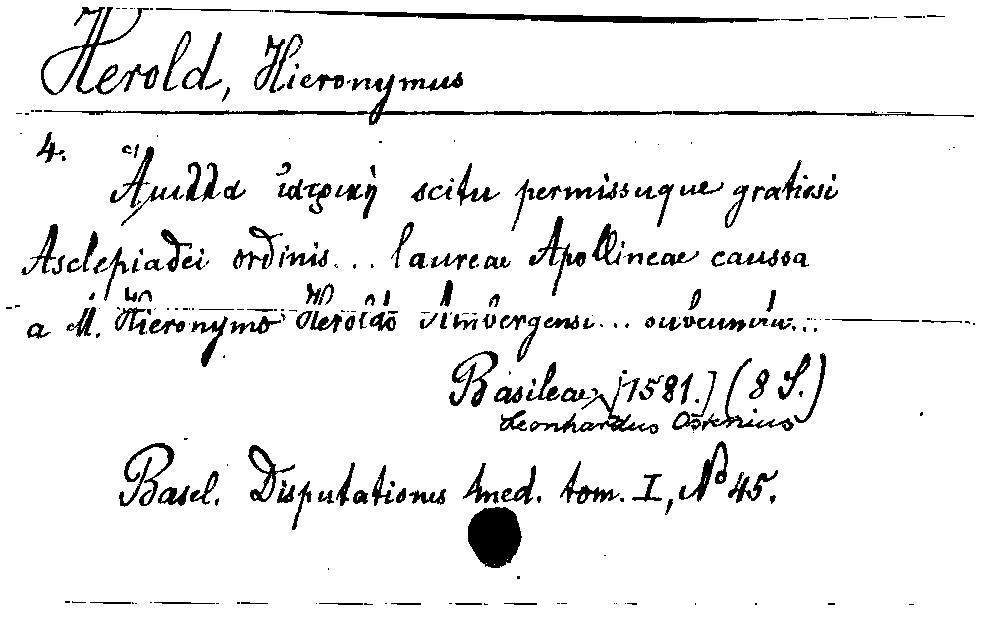 Herold, Hieronymus
4. Ἅμιλλα ἰατρικὴ scitu permissuque gratiosi
Asclepiadei ordinis... laureae Apollineae caussa
a M. Hieronymo Heroldo Ambergensi... subeunda...
Basileae, [1581.] (8 S.)
Leonhardus Ostenius
Basel. Disputationes med. tom. I, No 45.